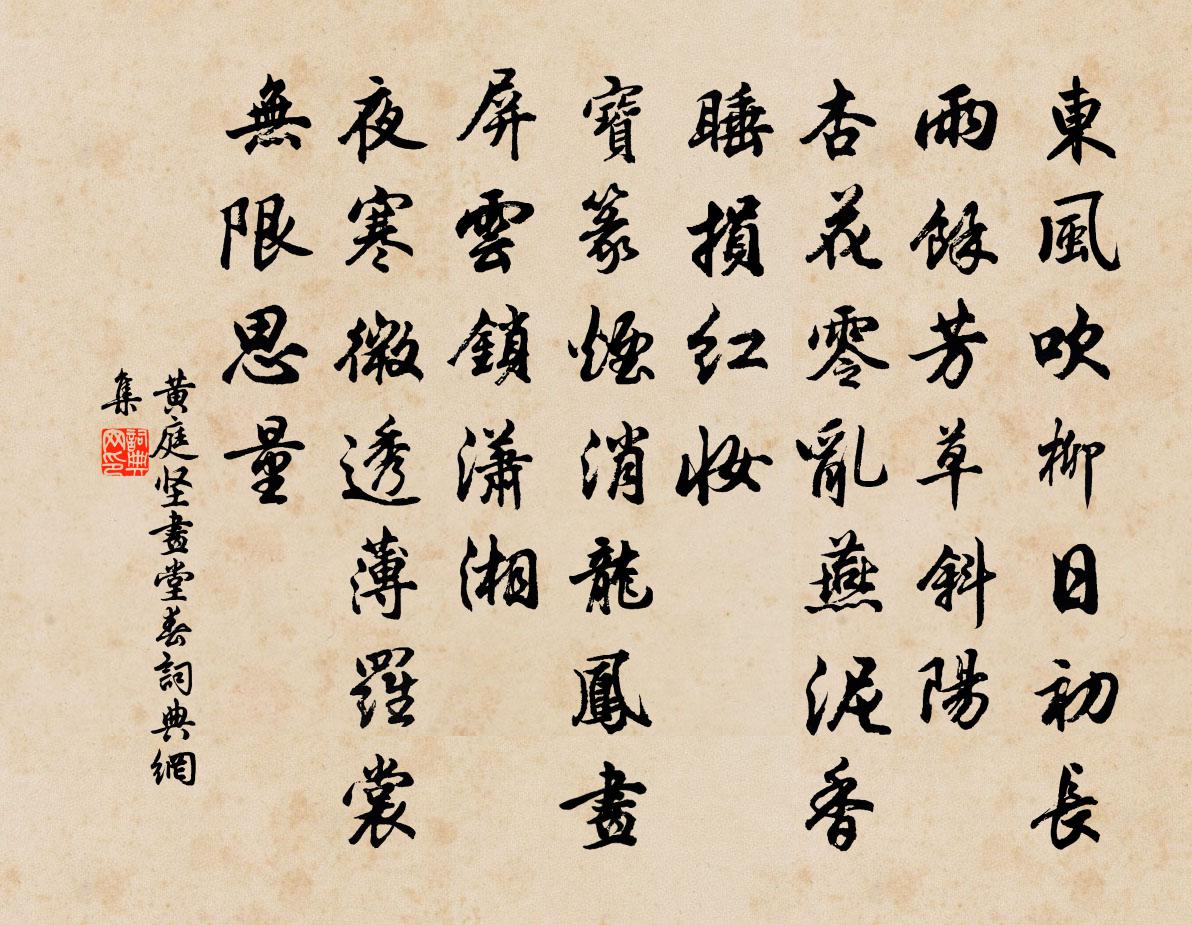 東風吹柳日初長
雨餘芳草斜陽
杏花零亂燕泥香
睡損紅妝
寶篆煙消龍鳳畫
屏雲鎖瀟湘
夜寒微透薄羅裳
無限思量
黄庭坚畫堂春詞典網
集
詞典
网印